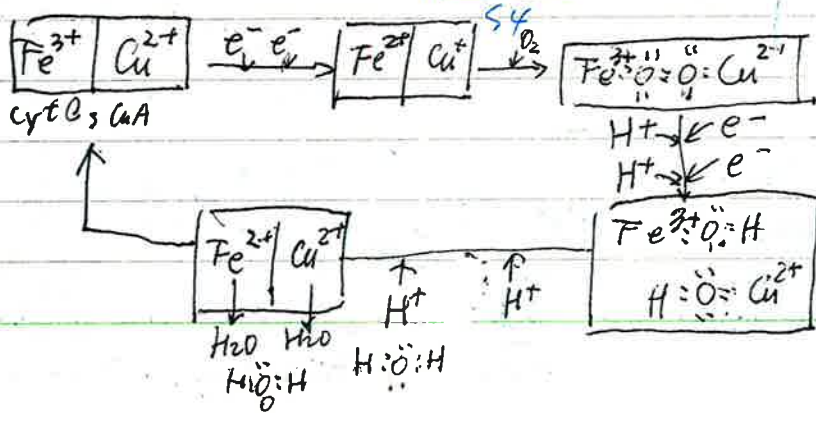 Fe³⁺ Cu²⁺ e⁻ e⁻ Fe²⁺ Cu⁺ O₂ Fe³⁺:Ö:Ö:Cu²⁻
54
cyt a₃ CuA
H⁺ e⁻
H⁺ e⁻
Fe³⁺:Ö:H
H:Ö:Cu²⁺
Fe²⁺ Cu²⁺
H⁺ H⁺
H₂O H₂O
H:Ö:H H:Ö:H